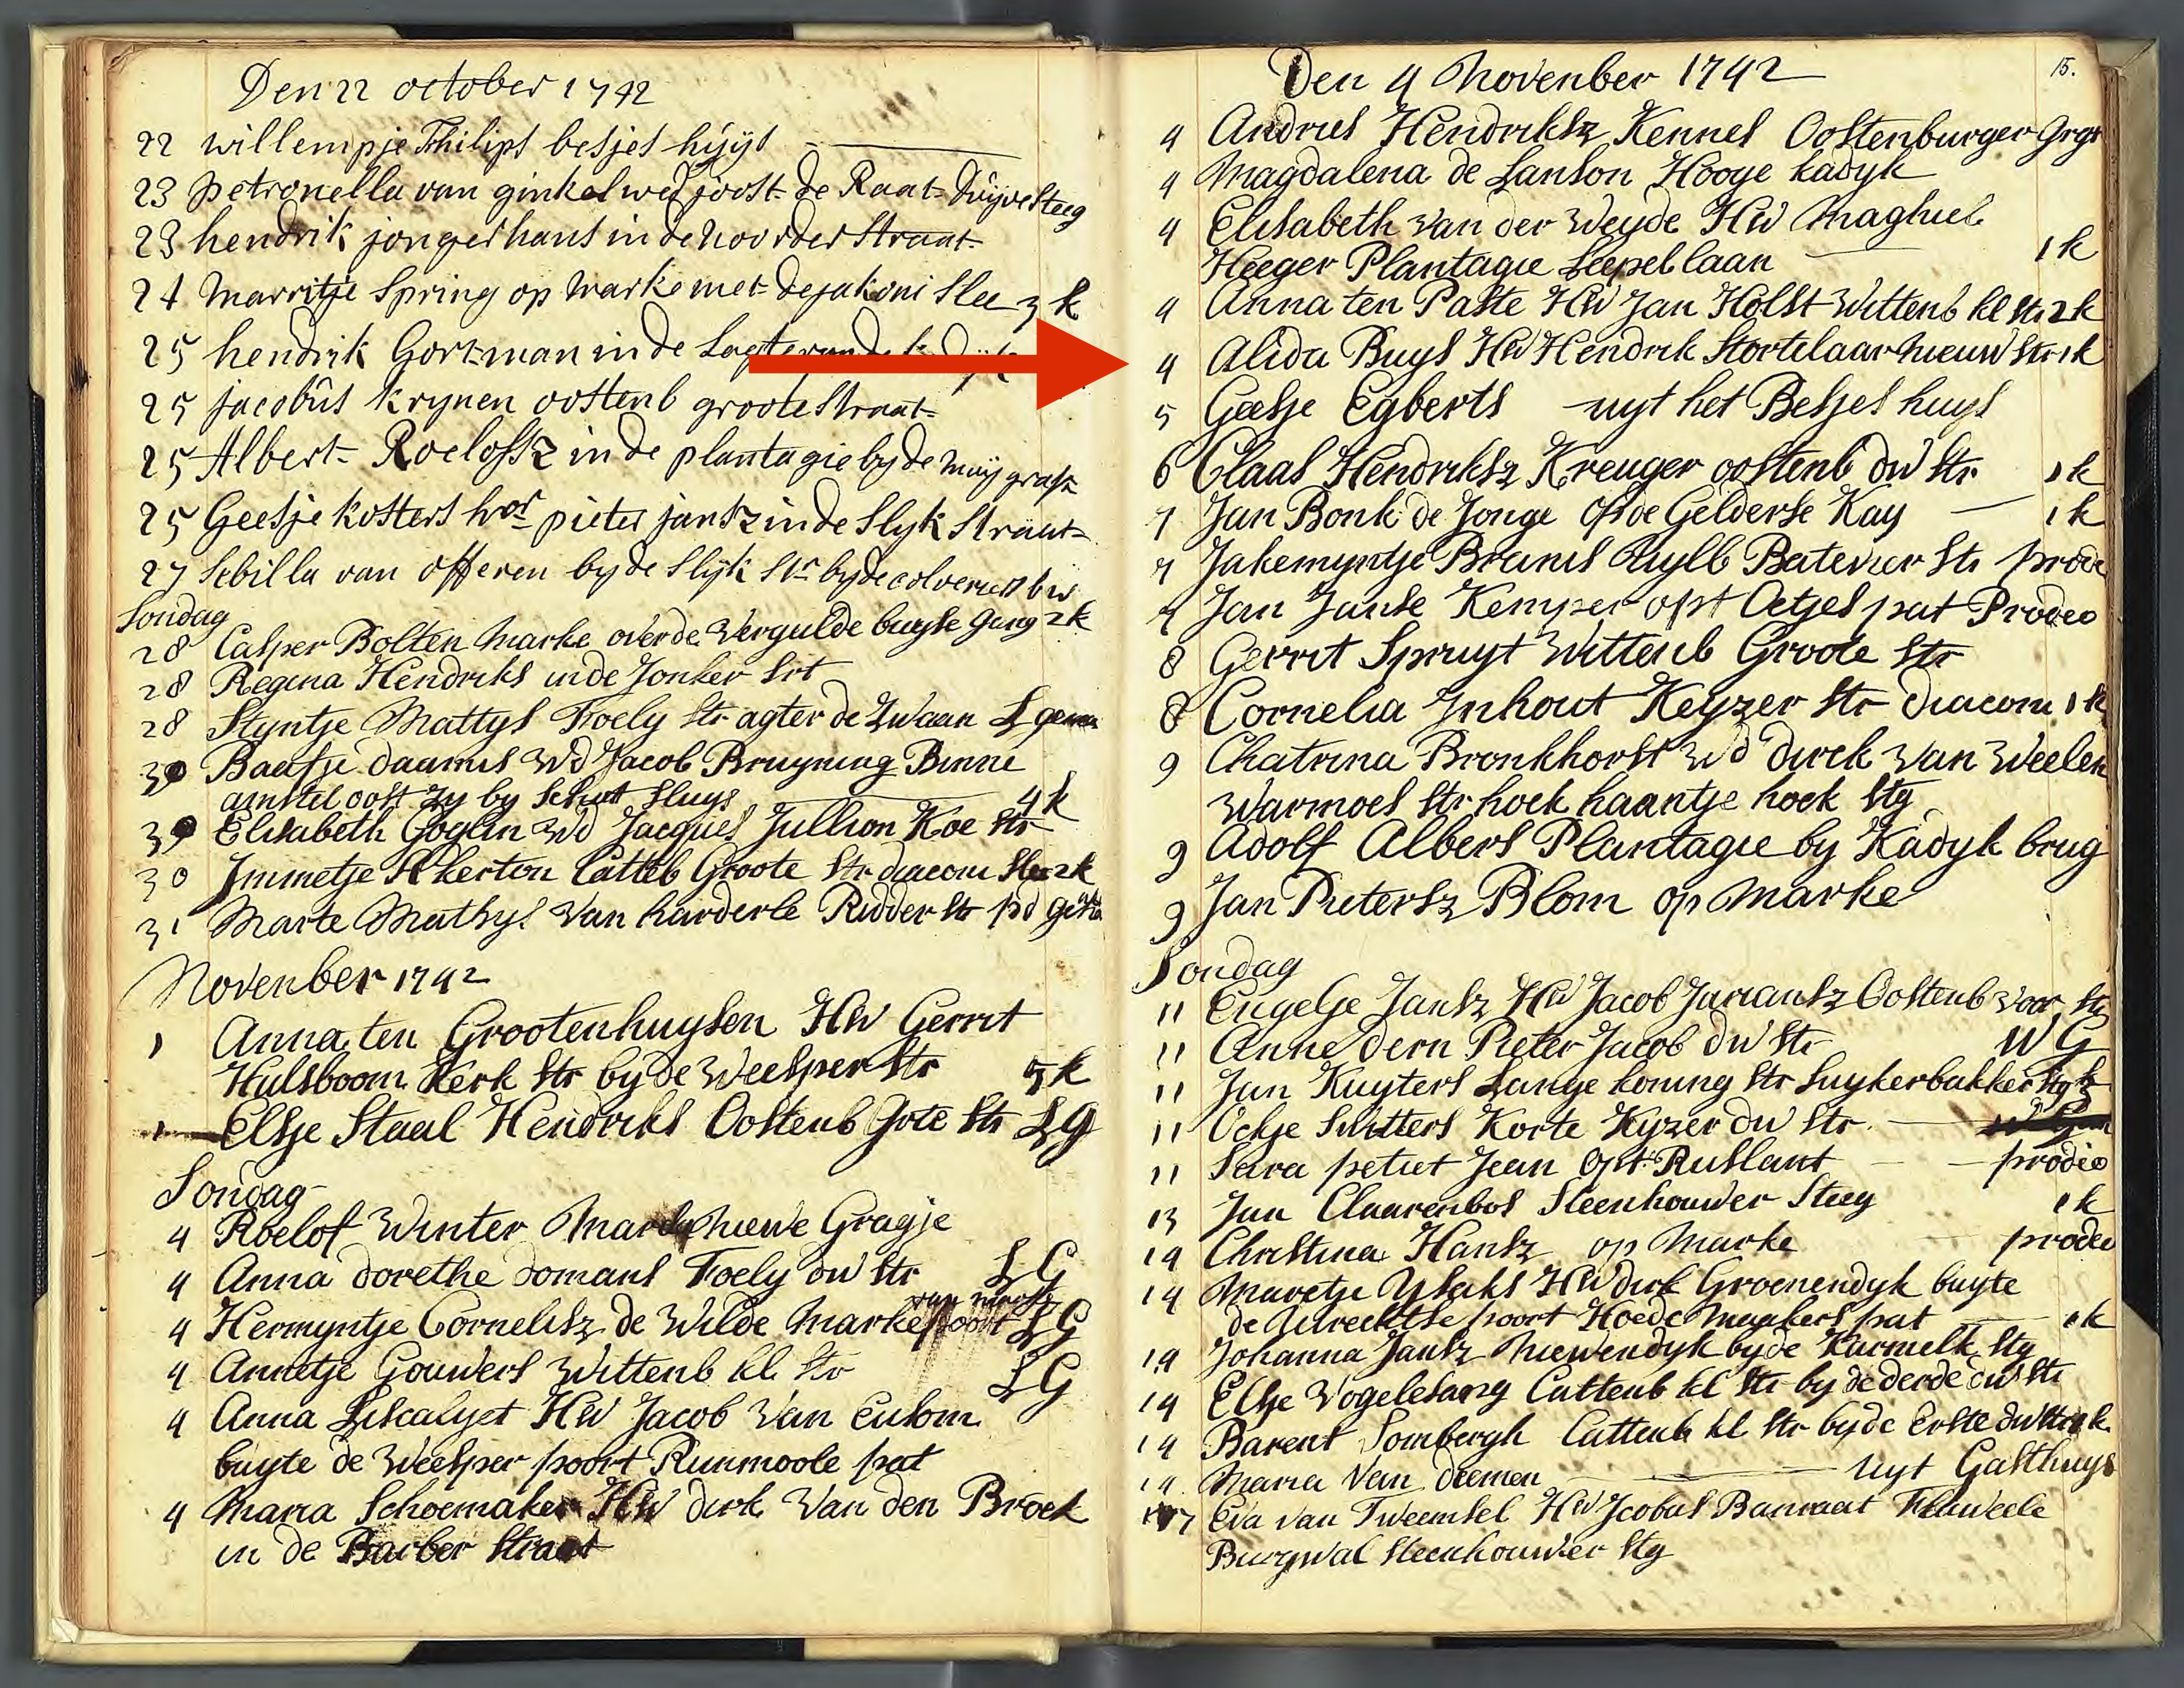 Den 22 october 1742
22 willempje Philips besjes huijs
23 petronella van ginkel wed joost de Raat Duijvesteeg
23 hendrik jongerhans in de noorder straat
24 Marritje Spring op marke met dejakoni slee 3 k
25 hendrik Gortman in de
25 jacobus krynen oostenb groote straat
25 Albert Roelofsz in de plantagie by de muy graft
25 Geesje kosters hvr pieter jansz in de slyk straat
27 Sebilla van offeren by de slijk str by de
Sondag
28 Casper Bolten Marke over de Vergulde buyse gang 2 k
28 Regina Hendriks in de Jonker srt
28 Styntje Mattys Foely str agter de Zwaan L gem
30 Baafje daamus Wd Jacob Bruyning Binne
amstel oost zy by schut sluys 4 k
30 Elisabeth Goglin Wd Jacques Jullion Koe str
30 Immetje Akerton Catteb Groote str diaconi slee 2 k
31 Marte Mathys van harderle Ridder str pd
November 1742
1 Anna ten Grootenhuysen HW Gerrit
Hulsboom Kerk str by de Weesper str 5 k
1 Elsje Staal Hendriks Oostenb Grte str L G
Sondag
4 Roelof Winter Marcke niewe Gragje
4 Anna dorethe domans Foely dw str L G
4 Hermyntje Cornelisz de Wilde Marke L G
4 Annetje Gouwers Wittenb kl str L G
4 Anna Liscalyet HW Jacob Van Eulom
buyte de Weesper poort Runmoole pat
4 Maria Schoemaker HW dirk Van den Broek
in de Barber straat
15.
Den 4 November 1742
4 Andries Hendriksz Kennel Oostenburger Grgt
4 Magdalena de Lanson Hooge kadyk
4 Elisabeth Van der Weyde HW Maghiel
Heeger Plantagie Leepel laan 1 k
4 Anna ten Paste HW Jan Holst Wittenb kl str 2 k
4 Alida Buys HW Hendrik Stortelaar nieuw str 1 k
5 Geesje Egberts uyt het Besjes huys
6 Claas Hendriksz Kreuger oostenb dw str 1 k
7 Jan Bonk de Jonge op de Gelderse Kay 1 k
7 Jakemyntje Bruns Uylb Batevier str prode
7 Jan Janse Kemper opt Oetjes pat Prodeo
8 Gerrit Spruyt Wittenb Groote str
8 Cornelia Inhout Keyzer str diaconi 1 k
9 Chatrina Bronkhorst Wd dirck Van Weelen
Warmoes str hoek haantje hoek stg
9 Adolf Albers Plantagie by Kadyk brug
9 Jan Pietersz Blom op Marke
Sondag
11 Engelje Jansz HW Jacob Juriaansz Oostenb voor str
11 Anne dern Pieter Jacob dw str W G
11 Jan Kuyters Lange koning str Suykerbakker stg
11 Oekje Sutters Korte Kyzer dw str
11 Sara petiet Jean opt Ruslant prodeo
13 Jan Claarenbos Steenhouwer Steeg 1 k
14 Christina Hansz op Marke prodeo
14 Maretje Ysaks HW dirk Groenendyk buyte
de Utrechtse poort Hoedemaakers pat 1 k
14 Johanna Jansz Niewendyk by de Karmelk stg
14 Elsje Vogelesang Cattenb kl str by de derde dw str
14 Barent Sombergh Cattenb kl str by de Erste dw str 1 k
14 Maria Van diemen uyt Gasthuys
17 Eva van Tweemsel HW Jcobus Banraat Fluweele
Burgwal Steenhouwer stg